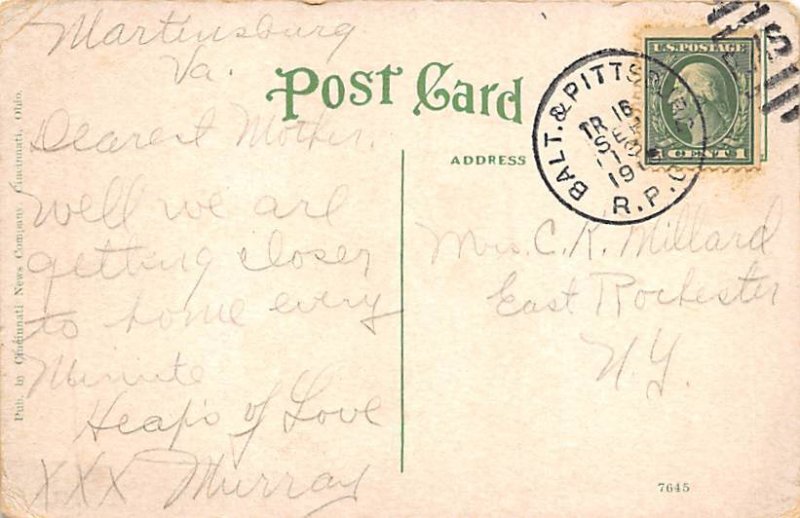 Martinsburg
Va.
Dearest Mother.
Well we are
getting closer
to home every
Minute
Heaps of Love
XXX Murray
Pub. by Cincinnati News Company, Cincinnati, Ohio.
Post Card
ADDRESS
U.S. POSTAGE
1 CENT 1
BALT. & PITTSBURG
TR 16
SEP
19
R.P.O.
Mrs. C. K. Millard
East Rochester
N.Y.
7645